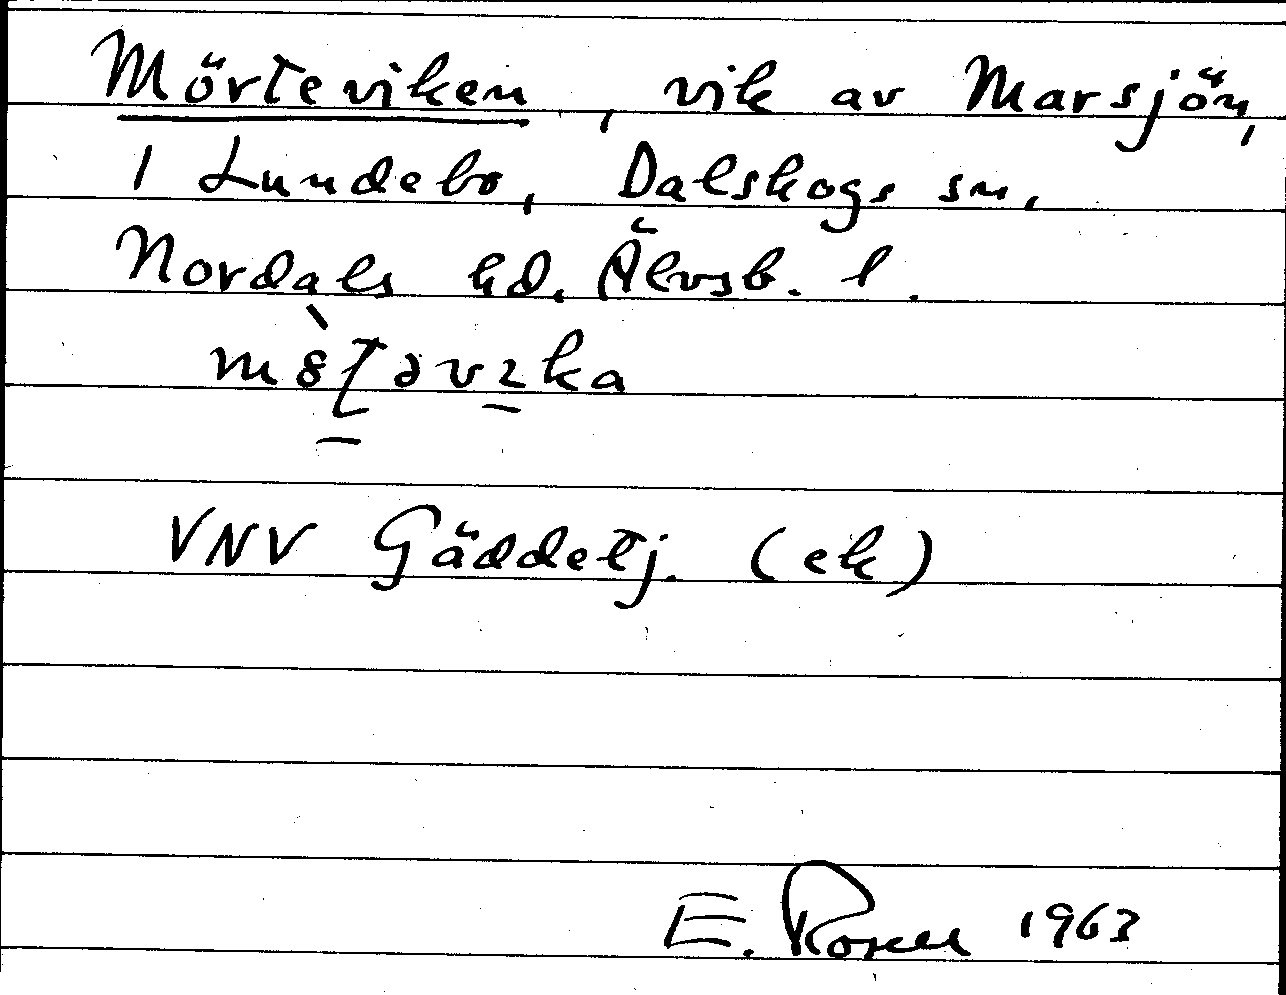 Mörteviken, vik av Marsjön,
1 Lundebo, Dalskogs sn,
Nordals hd. Älvsb. l.
VNV Gäddetj. (ek)
E. Rosen 1963